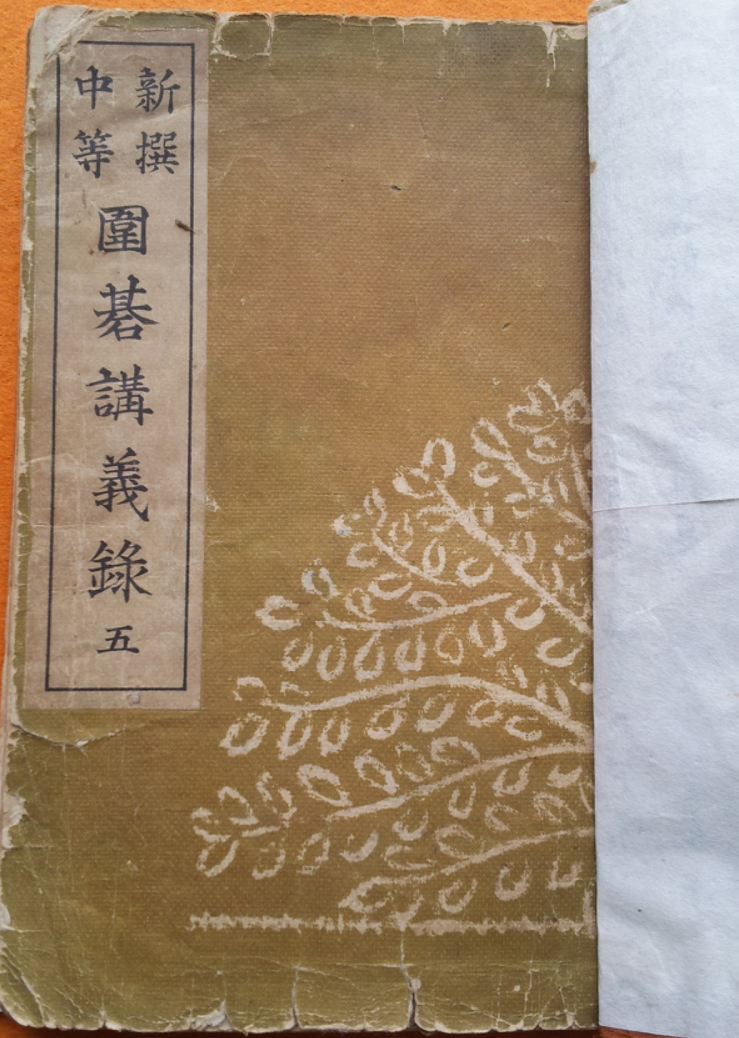 新撰
中等
圍碁講義錄 五